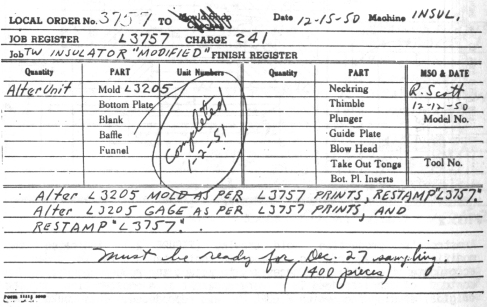 LOCAL ORDER No. 3757 TO Mould Shop Date 12-15-50 Machine INSUL.
JOB REGISTER L3757 CHARGE 241
Job TW INSULATOR "MODIFIED" FINISH REGISTER
Quantity PART Unit Numbers Quantity PART MSO & DATE
Alter Unit Mold L3205 Neckring R. Scott
Bottom Plate Thimble 12-12-50
Blank Plunger Model No.
Baffle Guide Plate
Funnel Blow Head
Take Out Tongs Tool No.
Bot. Pl. Inserts
Completed
1-2-51
Alter L3205 MOLD AS PER L3757 PRINTS, RESTAMP "L3757."
Alter L3205 GAGE AS PER L3757 PRINTS, AND
RESTAMP "L3757".
Must be ready for Dec. 27 sampling.
(1400 pieces)